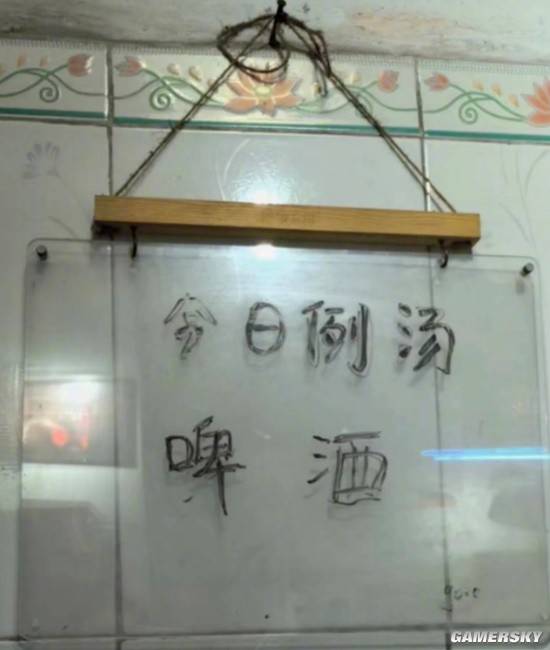 今日例汤
啤酒
GAMERSKY